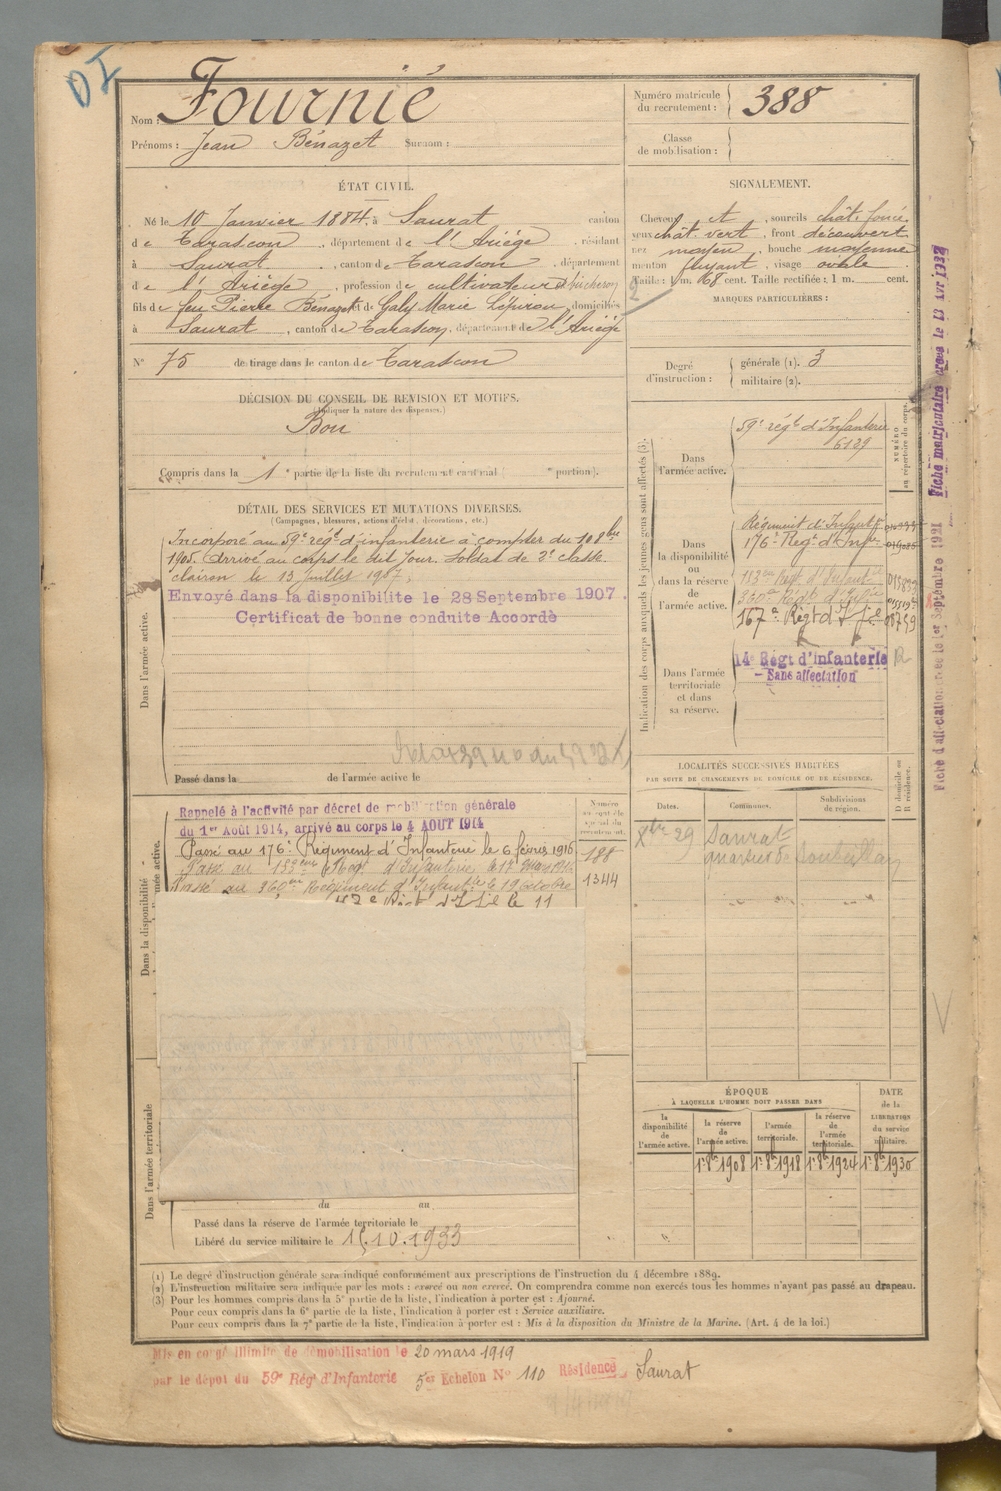 DI
Nom : Fournié
Prénoms : Jean Bénazet Surnom :
Numéro matricule du recrutement : 388
Classe de mobilisation :
ÉTAT CIVIL.
Né le 10 Janvier 1884, à Saurat canton
de Tarascon, département de l'Ariège, résidant
à Saurat, canton de Tarascon, département
de l'Ariège, profession de cultivateur
fils de feu Pierre Bénazet et de Galy Marie domiciliés
à Saurat, canton de Tarascon, département de l'Ariège
N° 75 de tirage dans le canton de Tarascon
SIGNALEMENT.
Cheveux ct, sourcils chât. foncé.
yeux chât. vert, front découvert
nez moyen, bouche moyenne
menton fuyant, visage ovale
Taille : 1 m. 68 cent. Taille rectifiée : 1 m. cent.
2
MARQUES PARTICULIÈRES :
Degré d'instruction : générale (1). 3
militaire (2).
DÉCISION DU CONSEIL DE REVISION ET MOTIFS.
(Indiquer la nature des dispenses.)
Bon
Compris dans la 1e partie de la liste du recrutement cantonal ( e portion).
DÉTAIL DES SERVICES ET MUTATIONS DIVERSES.
(Campagnes, blessures, actions d'éclat, décorations, etc.)
Dans l'armée active.
Incorporé au 59e régt d'infanterie à compter du 10 8bre
1905. Arrivé au corps le dit jour. soldat de 2e classe.
clairon le 13 Juillet 1907.
Envoyé dans la disponibilité le 28 Septembre 1907.
Certificat de bonne conduite Accordé
Passé dans la de l'armée active le
Indication des corps auxquels les jeunes gens sont affectés (3).
NUMÉRO au répertoire du corps.
Dans l'armée active.
59e régt d'Infanterie
6129
Dans la disponibilité ou dans la réserve de l'armée active.
Régiment d'Infant
176e Regt d'Infie
153ème Régt d'Infantie
360e Régt d'Infie
167e Régt d'Ife
Dans l'armée territoriale et dans sa réserve.
14e Régt d'infanterie
- Sans affectation
Fiche matriculaire créée le 13 Avr 1932
Fiche d'affectation créée le 1er Septembre 1921
LOCALITÉS SUCCESSIVES HABITÉES
PAR SUITE DE CHANGEMENTS DE DOMICILE OU DE RÉSIDENCE.
Dates. Communes. Subdivisions de région. D domicile ou R résidence.
Xbre 29 Saurat
quartier de
Dans la disponibilité
Numéro au contrôle spécial du recrutement.
Rappelé à l'activité par décret de mobilisation générale
du 1er Août 1914, arrivé au corps le 4 AOUT 1914
Passé au 176e Régiment d'Infanterie le 6 février 1916 188
Passé au 153ème Régt d'Infanterie le 17 Mars 1916
Passé au 360ème Régiment d'Infantie le 19 octobre 1344
Régt d'Ife le 11
ÉPOQUE
À LAQUELLE L'HOMME DOIT PASSER DANS
la disponibilité de l'armée active.
la réserve de l'armée active.
l'armée territoriale.
la réserve de l'armée territoriale.
DATE de la LIBÉRATION du service militaire.
1er 8bre 1908 1er 8bre 1918 1er 8bre 1924 1er 8bre 1930
Dans l'armée territoriale
du au
Passé dans la réserve de l'armée territoriale le
Libéré du service militaire le 15.10.1933
(1) Le degré d'instruction générale sera indiqué conformément aux prescriptions de l'instruction du 4 décembre 1889.
(2) L'instruction militaire sera indiquée par les mots : exercé ou non exercé. On comprendra comme non exercés tous les hommes n'ayant pas passé au drapeau.
(3) Pour les hommes compris dans la 5e partie de la liste, l'indication à porter est : Ajourné.
Pour ceux compris dans la 6e partie de la liste, l'indication à porter est : Service auxiliaire.
Pour ceux compris dans la 7e partie de la liste, l'indication à porter est : Mis à la disposition du Ministre de la Marine. (Art. 4 de la loi.)
Mis en congé illimité de démobilisation le 20 mars 1919
par le dépôt du 59e Rég d'Infanterie 5e Echelon N° 110 Résidence Saurat